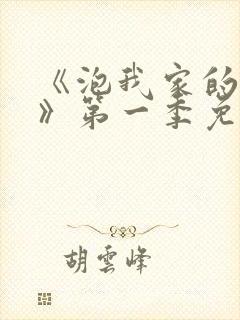 《泡我家的
》第一季免
胡雲峰